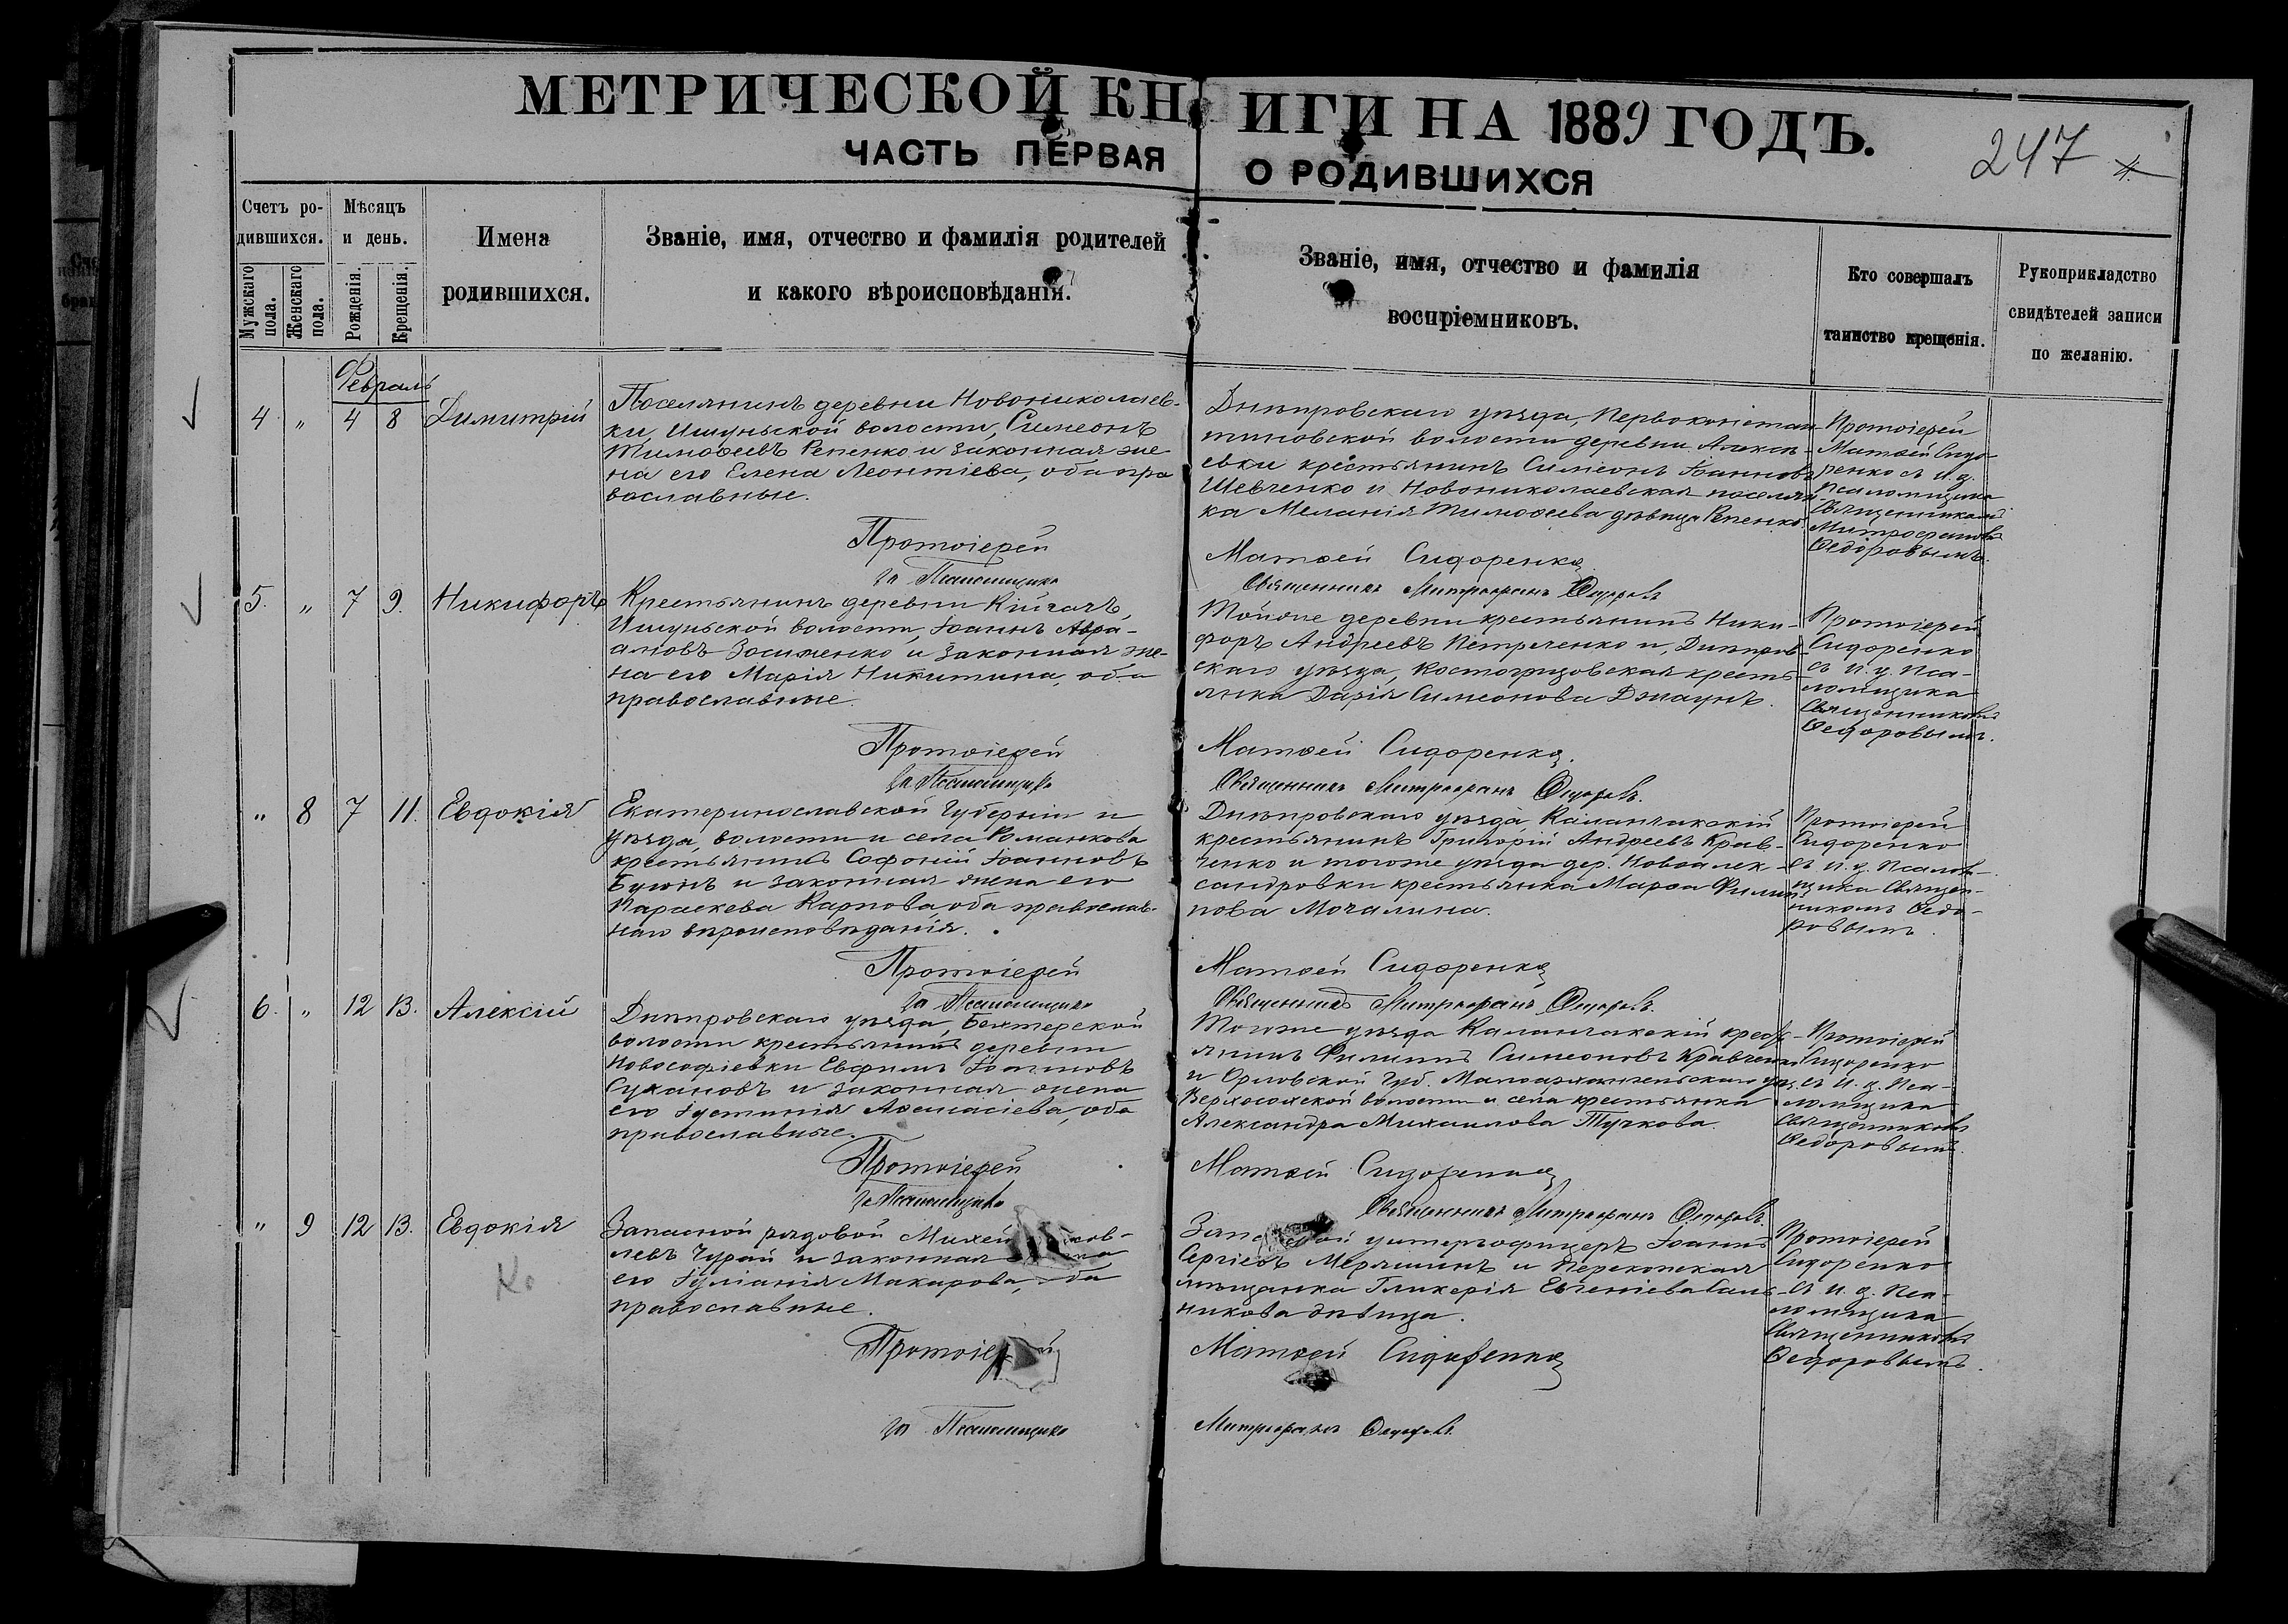 МЕТРИЧЕСКОЙ КНИГИ НА 1889 ГОДЪ.
247
ЧАСТЬ ПЕРВАЯ О РОДИВШИХСЯ
Счетъ ро-
дившихся.
Мужскаго пола.
Женскаго пола.
Мѣсяцъ
и день.
Рожденія.
Крещенія.
Имена
родившихся.
Званіе, имя, отчество и фамилія родителей
и какого вѣроисповѣданія.
Званіе, имя, отчество и фамилія
воспріемниковъ.
Кто совершалъ
таинство крещенія.
Рукоприкладство
свидѣтелей записи
по желанію.
Февраль
4 " 4 8 Димитрій
Поселянинъ деревни Новониколаев-
ки, Ишуньской волости, Симеонъ
Тимоѳеевъ Репенко и законная же-
на его Елена Леонтіева, оба пра
вославные.
Днѣпровскаго уѣзда, Первоконстан
тиновской волости деревни Алексѣ-
евки крестьянинъ Симеонъ Іоанновъ
Шевченко и Новониколаевская поселян
ка Меланія Тимоѳеева дѣвица Репенко
Протоіерей
Матѳей Сидо-
ренко съ и. д.
псаломщика
Священникомъ
Митрофаномъ
Ѳедоровымъ.
Протоіерей Матѳей Сидоренко
за Псаломщика Священникъ Митрофанъ Ѳедоровъ
5. " 7 9. Никифоръ
Крестьянинъ деревни
Ишуньской волости, Іоаннъ Авра-
амовъ Зосименко и законная же-
на его Марія Никитина, оба
православные.
Тойже деревни крестьянинъ Ники-
форъ Андреевъ Петреченко и, Днѣпров-
скаго уѣзда, Костогрызовская кресть
янка Дарія Симеонова Джаунъ.
Протоіерей
Сидоренко
съ и. д. Пса-
ломщика
Священникомъ
Ѳедоровымъ.
Протоіерей Матѳей Сидоренко.
за Псаломщика Священникъ Митрофанъ Ѳедоровъ.
" 8 7 11. Евдокія
Екатеринославской Губерніи и
уѣзда, волости и села Романкова
крестьянинъ Софоній Іоанновъ
и законная жена его
Параскева Карпова, оба православ-
наго вѣроисповѣданія.
Днѣпровскаго уѣзда Каланчакскій
крестьянинъ Григорій Андреевъ Крав-
ченко и тогоже уѣзда дер. Новоалек-
сандровки крестьянка Марѳа Филип-
пова Мочалина.
Протоіерей
Сидоренко
съ и. д. Псалом-
щика Священ-
никомъ Ѳедо-
ровымъ.
Протоіерей Матѳей Сидоренко
за Псаломщика Священникъ Митрофанъ Ѳедоровъ.
6. " 12 13. Алексій
Днѣпровскаго уѣзда, Бехтерской
волости крестьянинъ деревни
Новософіевки Евфимъ Іоанновъ
Сухановъ и законная жена
его Іустинія Аѳанасіева, оба
православные.
Тогоже уѣзда Каланчакскій крест-
янинъ Филиппъ Симеоновъ Кравченко
и Орловской Губ. Малоархангельскаго уѣз.
Верхососкской волости и села крестьянка
Александра Михаилова Тучкова.
Протоіерей
Сидоренко
съ и. д. Пса-
ломщика
Священникомъ
Ѳедоровымъ.
Протоіерей Матѳей Сидоренко
за Псаломщика Священникъ Митрофанъ Ѳедоровъ.
" 9 12 13. Евдокія
Запасной рядовой Михей ков-
левъ Чурай и законная
его Іуліанія Макарова, оба
православные.
Запасной унтеръофицеръ Іоаннъ
Сергіевъ Меряшинъ и Перекопская
мѣщанка Гликерія Евгеніева
никова дѣвица.
Протоіерей
Сидоренко
съ и. д. Пса-
ломщика
Священникомъ
Ѳедоровымъ.
Протоіерей Матѳей Сидоренко
за Псаломщика Митрофанъ Ѳедоровъ.